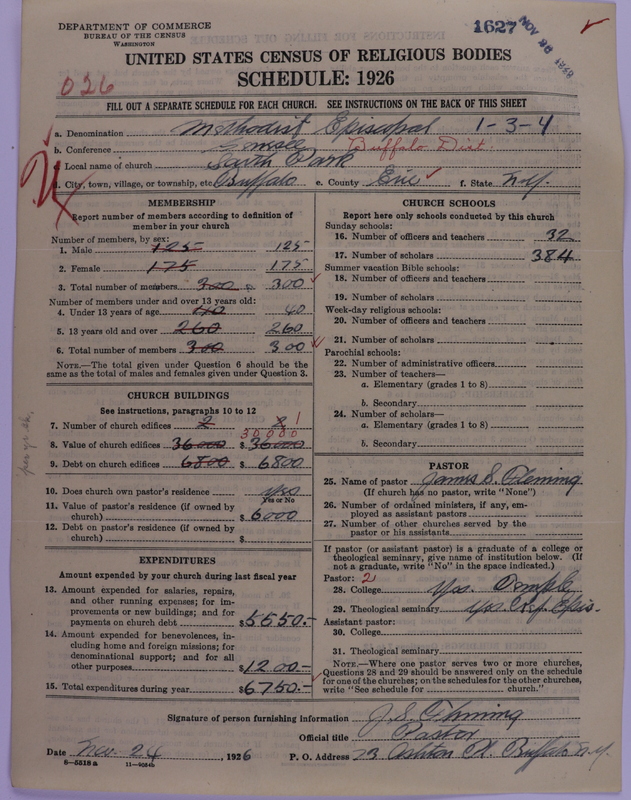 DEPARTMENT OF COMMERCE
BUREAU OF THE CENSUS
WASHINGTON
1627
NOV 26
UNITED STATES CENSUS OF RELIGIOUS BODIES
SCHEDULE: 1926
026
FILL OUT A SEPARATE SCHEDULE FOR EACH CHURCH. SEE INSTRUCTIONS ON THE BACK OF THIS SHEET
a. Denomination Methodist Episcopal 1-3-4
b. Conference Genesee Buffalo Dist.
c. Local name of church South Park
d. City, town, village, or township, etc. Buffalo e. County Erie f. State N.Y.
MEMBERSHIP
Report number of members according to definition of
member in your church
Number of members, by sex:
1. Male 125 125
2. Female 175 175
3. Total number of members 300 300
Number of members under and over 13 years old:
4. Under 13 years of age 40 40
5. 13 years old and over 260 260
6. Total number of members 300 300
NOTE.—The total given under Question 6 should be
same as the total of males and females given under Question 3.
CHURCH BUILDINGS
See instructions, paragraphs 10 to 12
7. Number of church edifices 2 2 1
30000
8. Value of church edifices 36000 $ 36000
9. Debt on church edifices 6800 $ 6800
10. Does church own pastor's residence yes
Yes or No
11. Value of pastor's residence (if owned by
church) $ 6000
12. Debt on pastor's residence (if owned by
church) $
EXPENDITURES
Amount expended by your church during last fiscal year
13. Amount expended for salaries, repairs,
and other running expenses; for im-
provements or new buildings; and for
payments on church debt $5550.-
14. Amount expended for benevolences, in-
cluding home and foreign missions; for
denominational support; and for all
other purposes $1200.-
15. Total expenditures during year $6750.-
CHURCH SCHOOLS
Report here only schools conducted by this church
Sunday schools:
16. Number of officers and teachers 32
17. Number of scholars 384
Summer vacation Bible schools:
18. Number of officers and teachers
19. Number of scholars
Week-day religious schools:
20. Number of officers and teachers
21. Number of scholars
Parochial schools:
22. Number of administrative officers
23. Number of teachers—
a. Elementary (grades 1 to 8)
b. Secondary
24. Number of scholars—
a. Elementary (grades 1 to 8)
b. Secondary
PASTOR
25. Name of pastor James S. Fleming
(If church has no pastor, write "None")
26. Number of ordained ministers, if any, em-
ployed as assistant pastors
27. Number of other churches served by the
pastor or his assistants
If pastor (or assistant pastor) is a graduate of a college or
theological seminary, give name of institution below. (If
not a graduate, write "No" in the space indicated.)
Pastor: 2
28. College Yes. Temple
29. Theological seminary Yes. Ref. Epis.
Assistant pastor:
30. College
31. Theological seminary
NOTE.—Where one pastor serves two or more churches,
Questions 28 and 29 should be answered only on the schedule
for one of the churches; on the schedules for the other churches,
write "See schedule for church."
Signature of person furnishing information J. S. Fleming
Official title Pastor
Date Nov. 24, 1926 P. O. Address 73 Ashton Pl. Buffalo N.Y.
8-5518 a